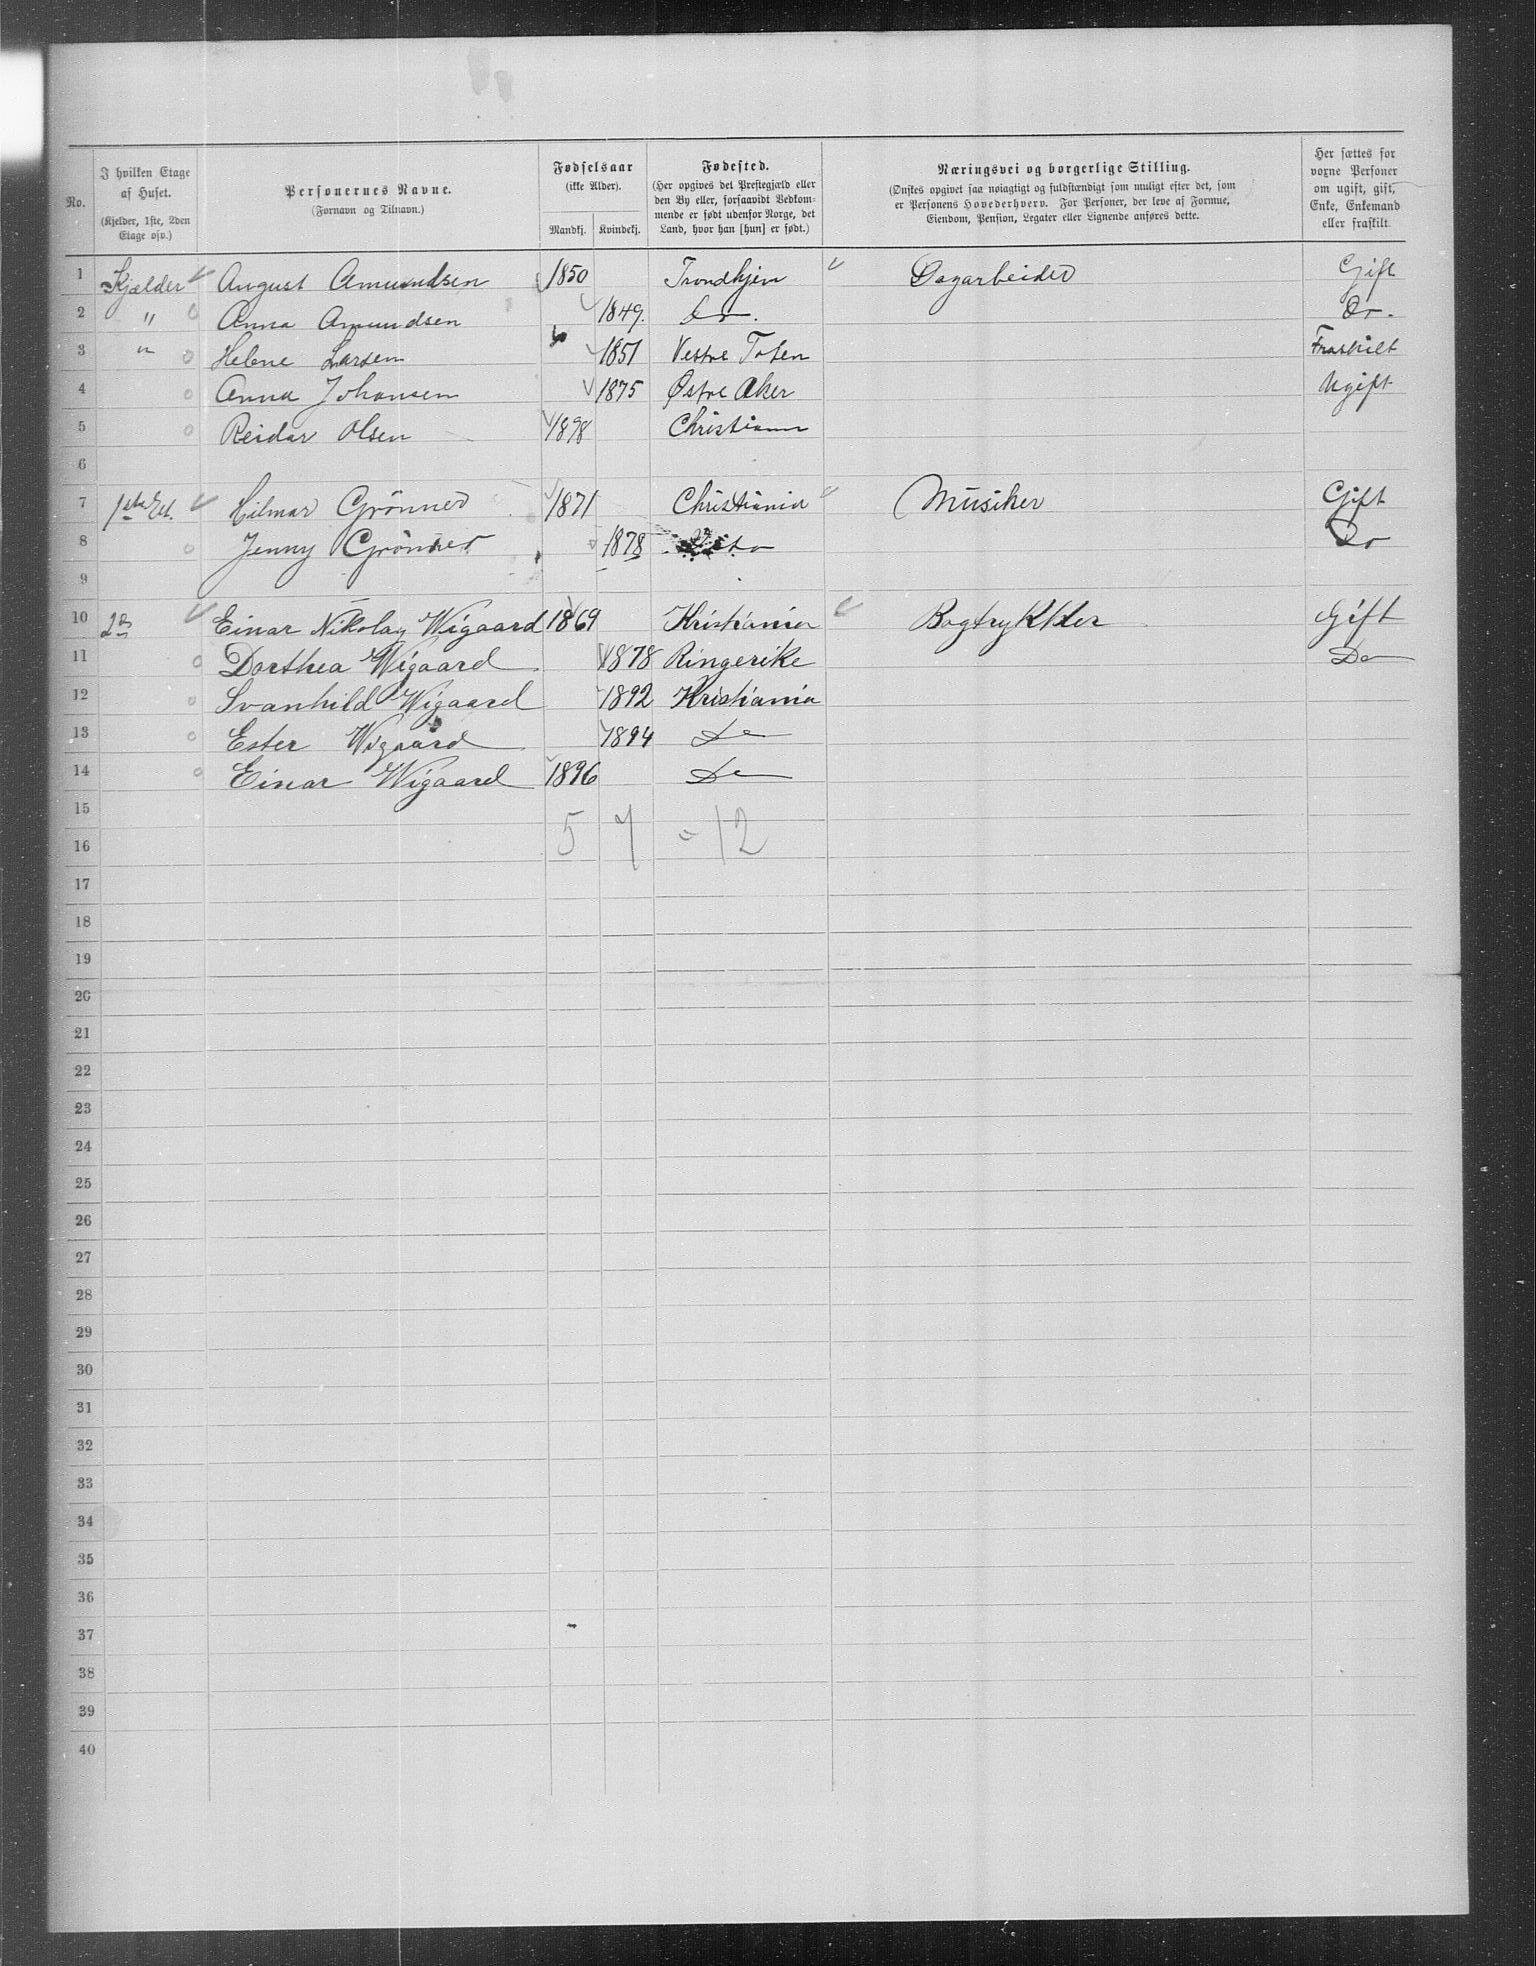 No. I hvilken Etage af Huset. (Kjelder, 1ste, 2den Etage osv.) Personernes Navne. (Fornavn og Tilnavn.) Fødselsaar (ikke Alder). Mandkj. Kvindekj. Fødested. (Her opgives det Prestegjæld eller den By eller, forsaavidt Vedkommende er født udenfor Norge, det Land, hvor han [hun] er født.) Næringsvei og borgerlige Stilling. (Ønskes opgivet saa nøiagtigt og fuldstændigt som muligt efter det, som er Personens Hovederhverv. For Personer, der leve af Formue, Eiendom, Pension, Legater eller Lignende anføres dette. Her sættes for voxne Personer om ugift, gift, Enke, Enkemand eller fraskilt.
1 Kjælder August Amundsen 1850 Trondhjem Dagarbeider Gift
2 " Anna Amundsen 1849. Do. Do.
3 " Helene Larsen 1851 Vestre Toten Fraskilt
4 Anna Johansen 1875 Østre Aker Ugift
5 Reidar Olsen 1898 Christiania
6
7 1ste Et. Hilmar Grönner 1871 Christiania Musiker Gift
8 Jenny Grönner 1878 Do
9
10 2d Einar Nikolay Wigaard 1869 Kristiania Bogtrykker Gift
11 Dorthea Wigaard 1878 Ringerike Do
12 Svanhild Wigaard 1892 Kristiania
13 Ester Wigaard 1894 Do
14 Einar Wigaard 1896 Do
15
16 5 7 = 12
17
18
19
20
21
22
23
24
25
26
27
28
29
30
31
32
33
34
35
36
37
38
39
40